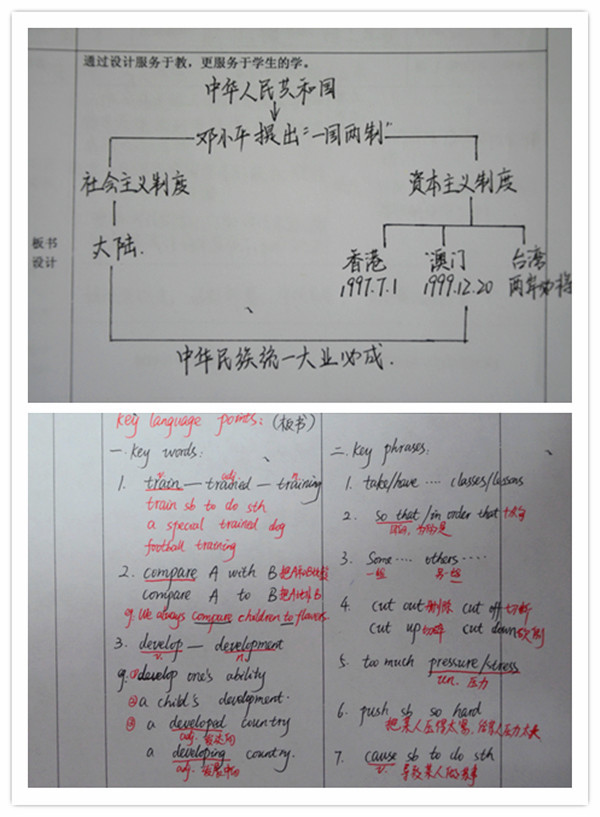 通过设计服务于教，更服务于学生的学。
中华人民共和国
邓小平提出“一国两制”
社会主义制度
资本主义制度
板书
设计
大陆.
香港 澳门 台湾
1997.7.1 1999.12.20 两岸
中华民族统一大业必成.
Key language points: (板书)
一. Key words:
v. adj n.
1. train — trained — training
train sb to do sth
a special trained dog
football training
2. compare A with B 把A和B比较
compare A to B 把A比作B
eg. We always compare children to flowers.
3. develop — development
v. n.
eg. ①develop one's ability
②a child's development.
③ a developed country
adj. 发达的
a developing country.
adj. 发展中的
二. Key phrases:
1. take/have .... classes/lessons
2. so that / in order that +从句
以便, 为的是
3. Some .... others ....
一些 另一些
4. cut out 删除 cut off 切断
cut up 切碎 cut down 砍倒
5. too much pressure/stress
un. 压力
6. push sb so hard
把某人压得太紧, 给某人压力太大
7. cause sb to do sth
v. 导致某人做某事